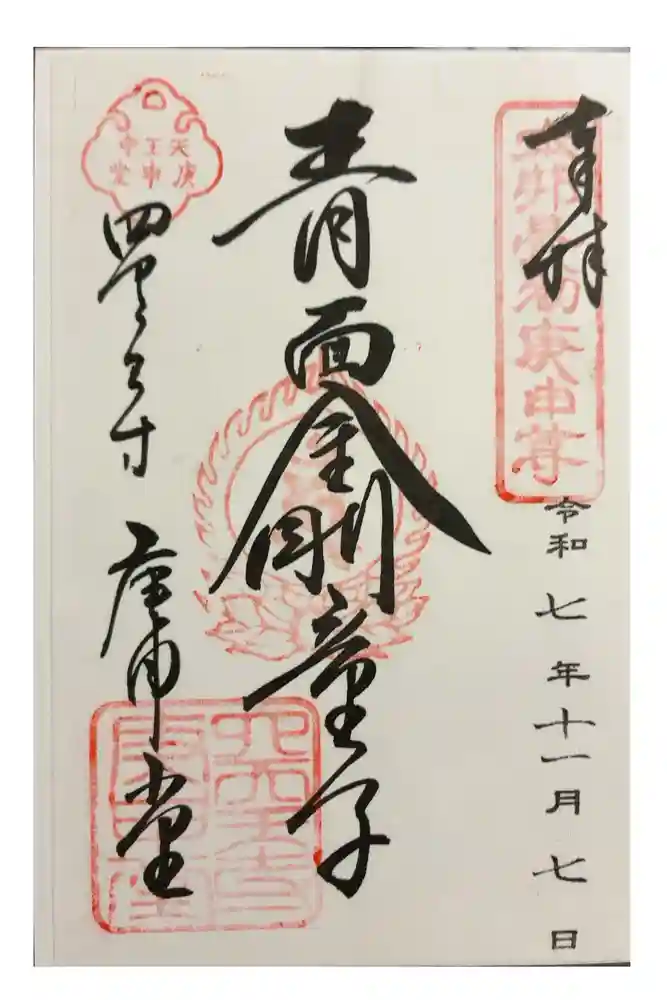 奉拝
本邦最初庚申尊
令和七年十一月七日
青面金剛童子
天王寺
庚申堂
四天王寺 庚申堂
四天王寺
庚申堂